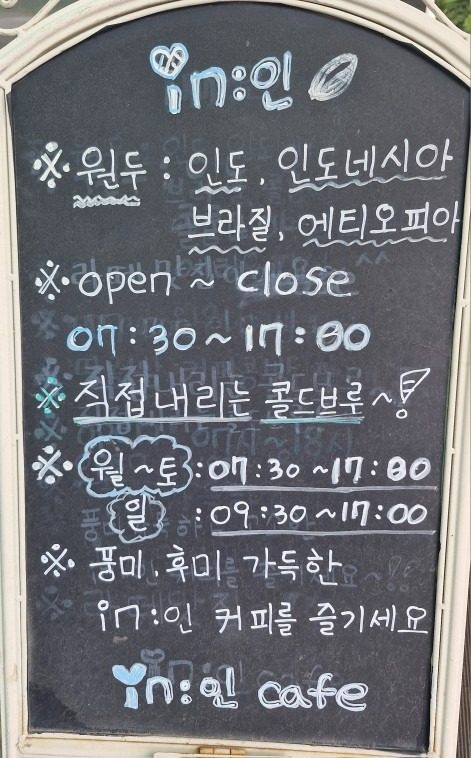 in:인
※ 원두 : 인도, 인도네시아
브라질, 에티오피아
※ open ~ close
07:30 ~ 17:00
※ 직접내리는 콜드브루~!
※ 월~토 : 07:30 ~17:00
일 : 09:30 ~17:00
※ 풍미, 후미 가득한
in:인 커피를 즐기세요
in:인 cafe